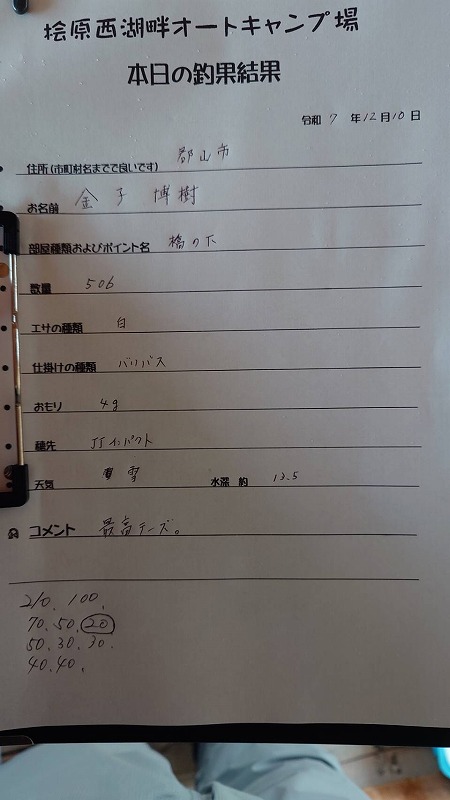 桧原西湖畔オートキャンプ場
本日の釣果結果
令和 7 年 12月 10 日
住所(市町村名までで良いです) 郡山市
お名前 金子 博樹
部屋種類およびポイント名 橋の下
数量 506
エサの種類 白
仕掛けの種類 バリバス
おもり 4g
穂先 JJインパクト
天気 雪 水深 約 13.5
コメント 最高デーズ。
210、100、
70、50、20
50、30、30、
40、40、